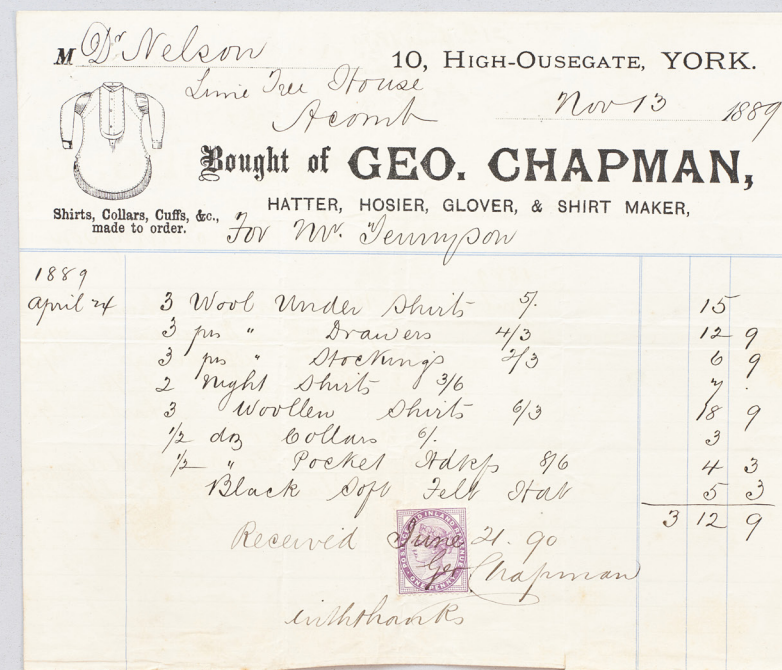 M Dr Nelson
10, HIGH-OUSEGATE, YORK.
Lime Tree House
Acomb
Nov 13 1889
Bought of GEO. CHAPMAN,
HATTER, HOSIER, GLOVER, & SHIRT MAKER,
Shirts, Collars, Cuffs, &c.,
made to order.
For Mr. Tennyson
1889
April 24 3 Wool Under Shirts 5/. 15
3 prs " Drawers 4/3 12 9
3 prs " Stockings 2/3 6 9
2 Night Shirts 3/6 7 .
3 Woollen Shirts 6/3 18 9
1/2 doz Collars 6/. 3
1/2 " Pocket Hdkfs 8/6 4 3
Black Soft Felt Hat 5 3
3 12 9
Received June 21. 90
Geo Chapman
with thanks